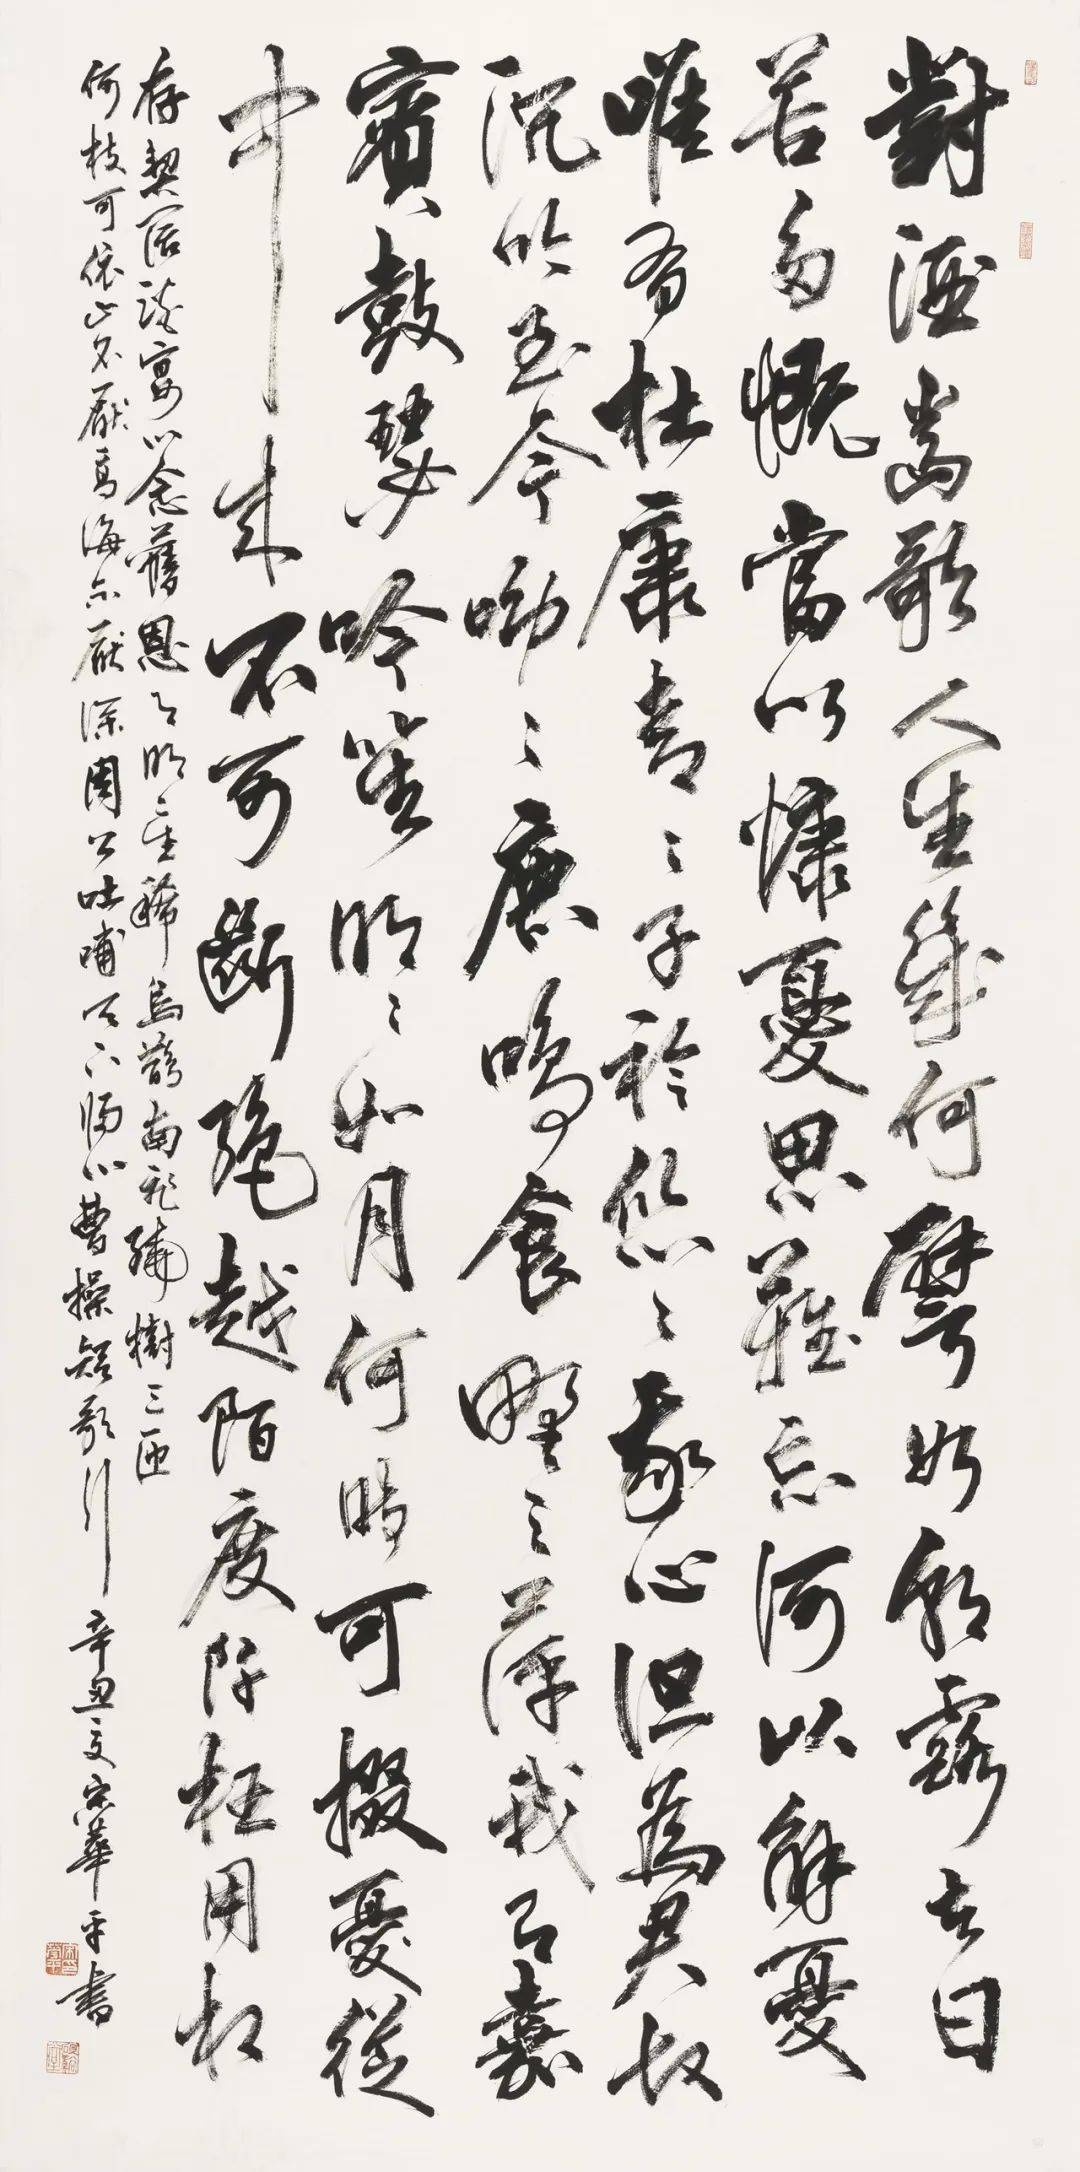 對酒當歌人生幾何譬如朝露去日
苦多慨當以慷憂思難忘何以解憂
唯有杜康青〻子衿悠〻我心但為君故
沉吟至今呦〻鹿鳴食野之萍我有嘉
賓鼓瑟吹笙明〻如月何時可掇憂從
中來不可斷絕越陌度阡枉用相
存契闊談宴心念舊恩月明星稀烏鵲南飛繞樹三匝
何枝可依山不厭高海不厭深周公吐哺天下歸心曹操短歌行辛丑夏宗華平書